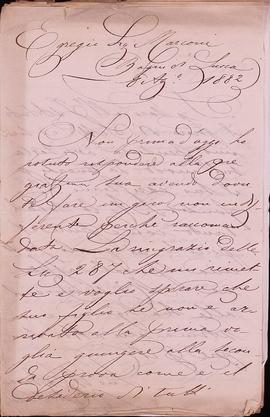 Egregio Sig Marconi
Bagni di Lucca
6 Ag.º 1882
Non prima d'oggi ho
potuto rispondere alla pre
giatma sua avendo dovu
to fare un giro non indif
ferente perchè raccoman
data. La ringrazio delle
Lire 287 che mi remet
te e voglio sperare che
suo figlio se non è ar
rivato alla prima vo
glia giungere alla secon
da prova come è il
desiderio di tutti